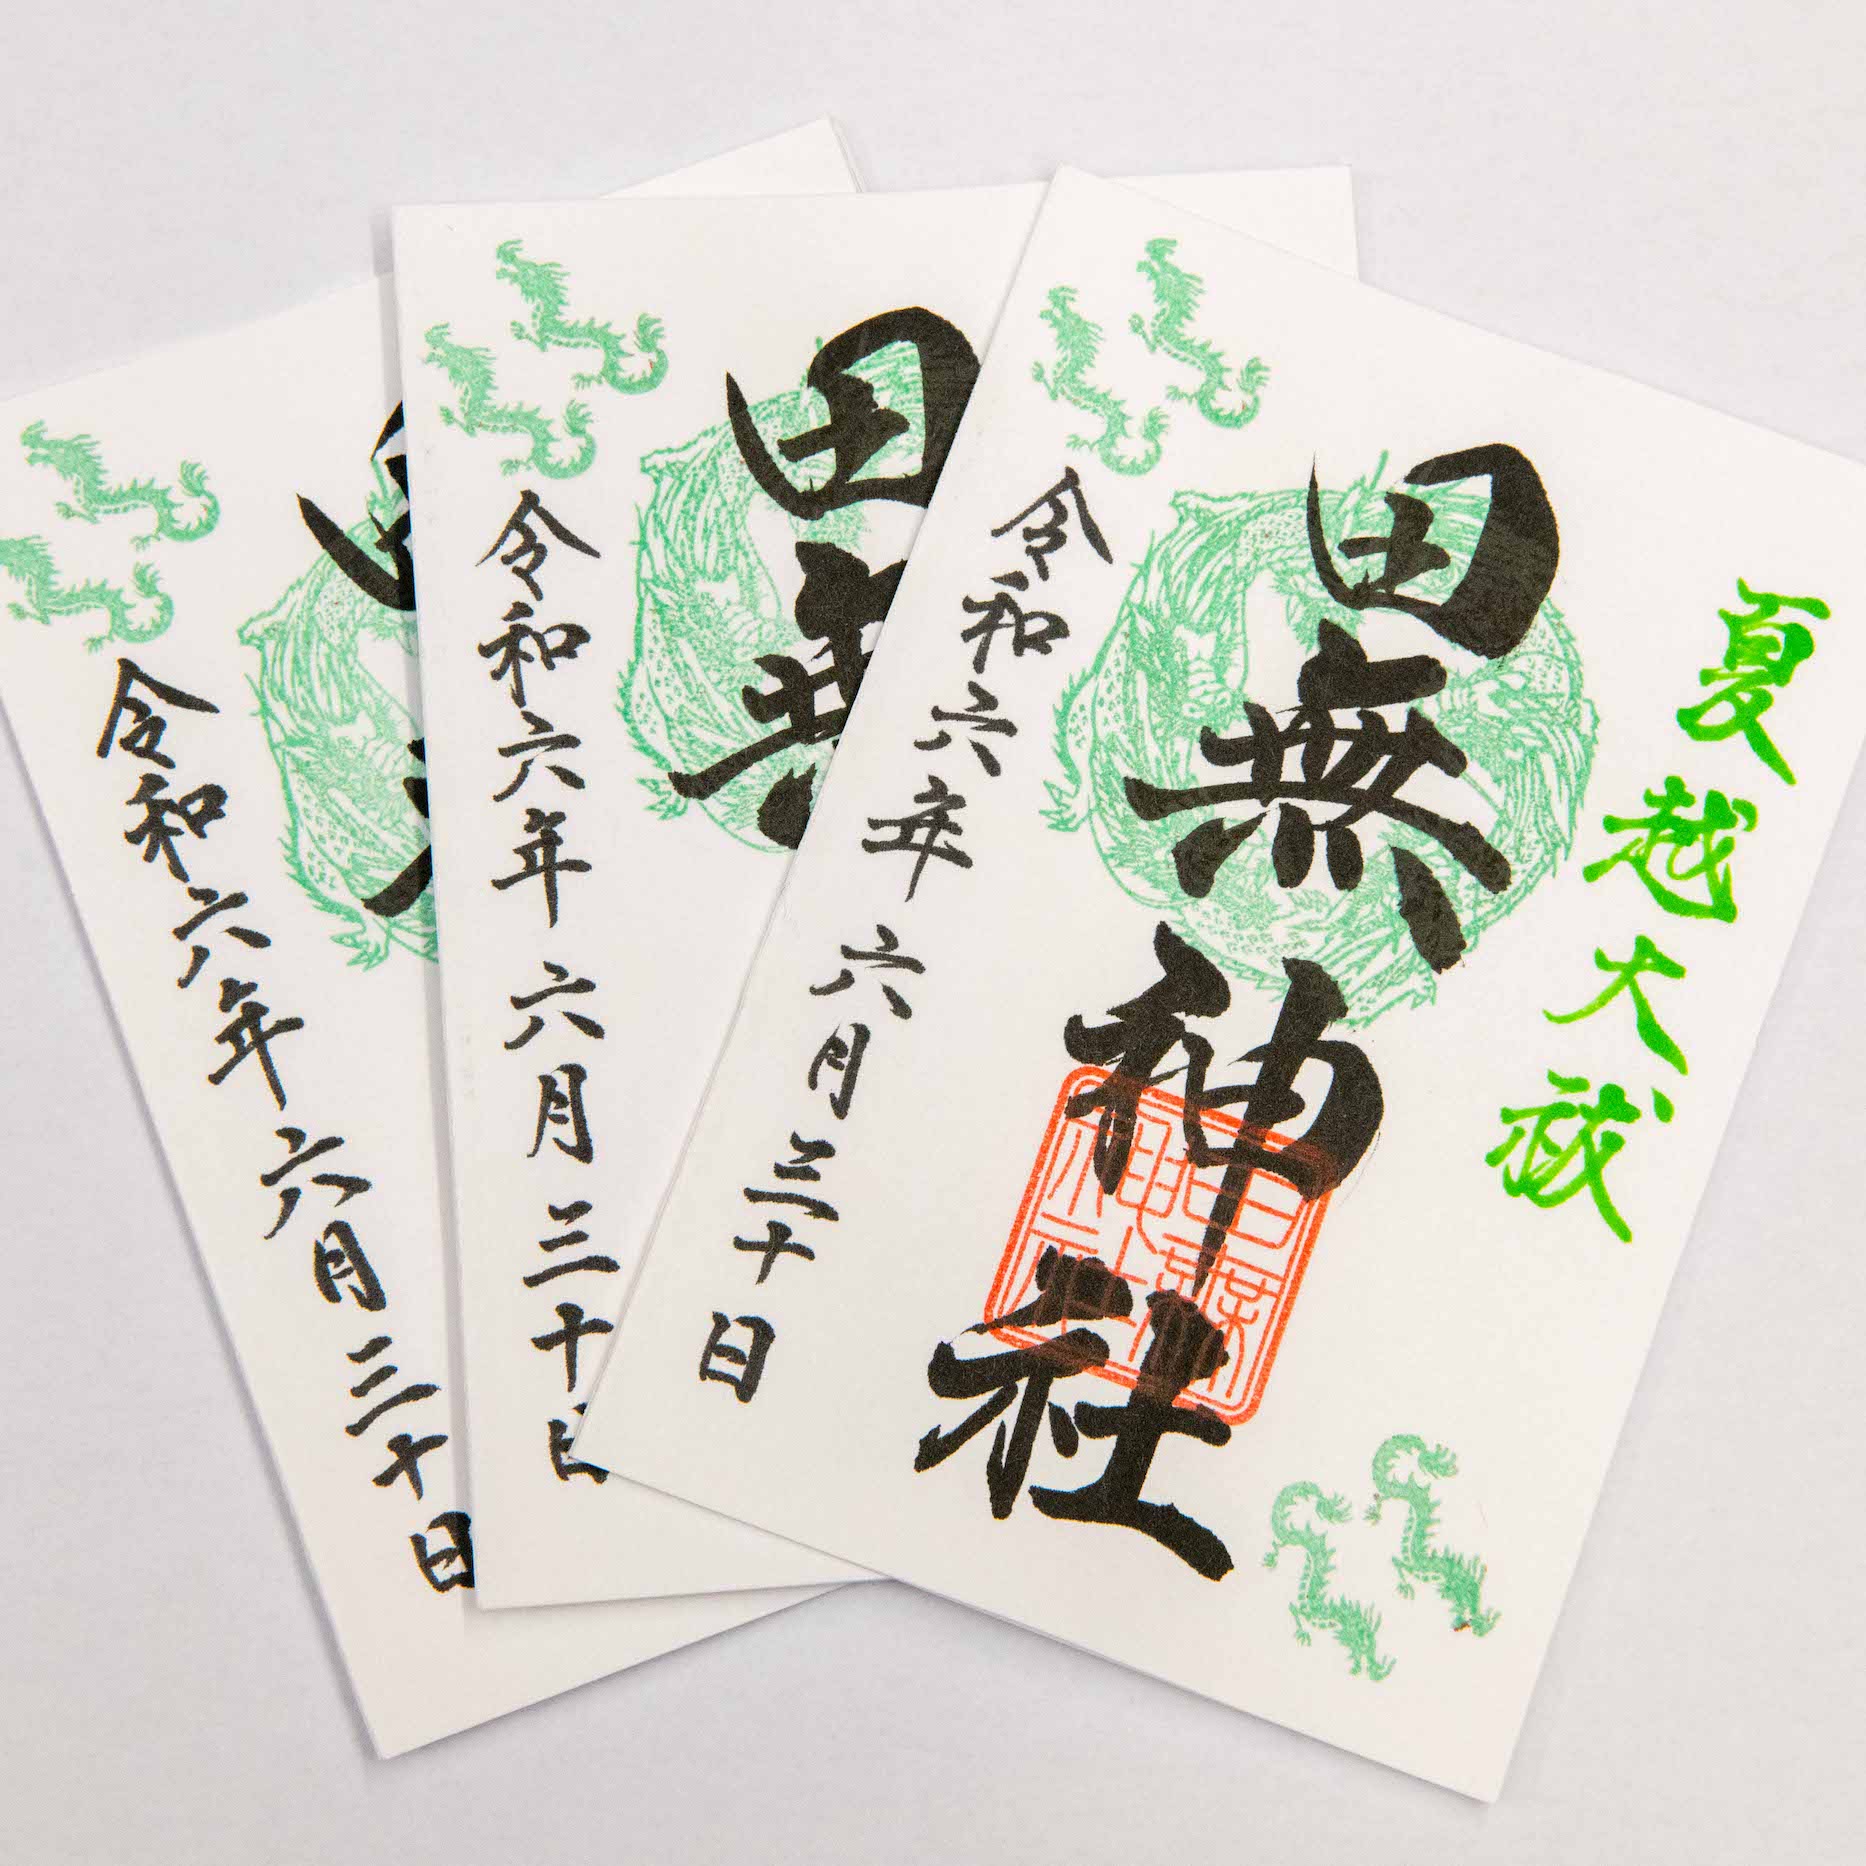 夏越大祓
田無神社
田無神社
令和六年六月三十日
田無
令和六年六月三十日
令和六年六月三十日